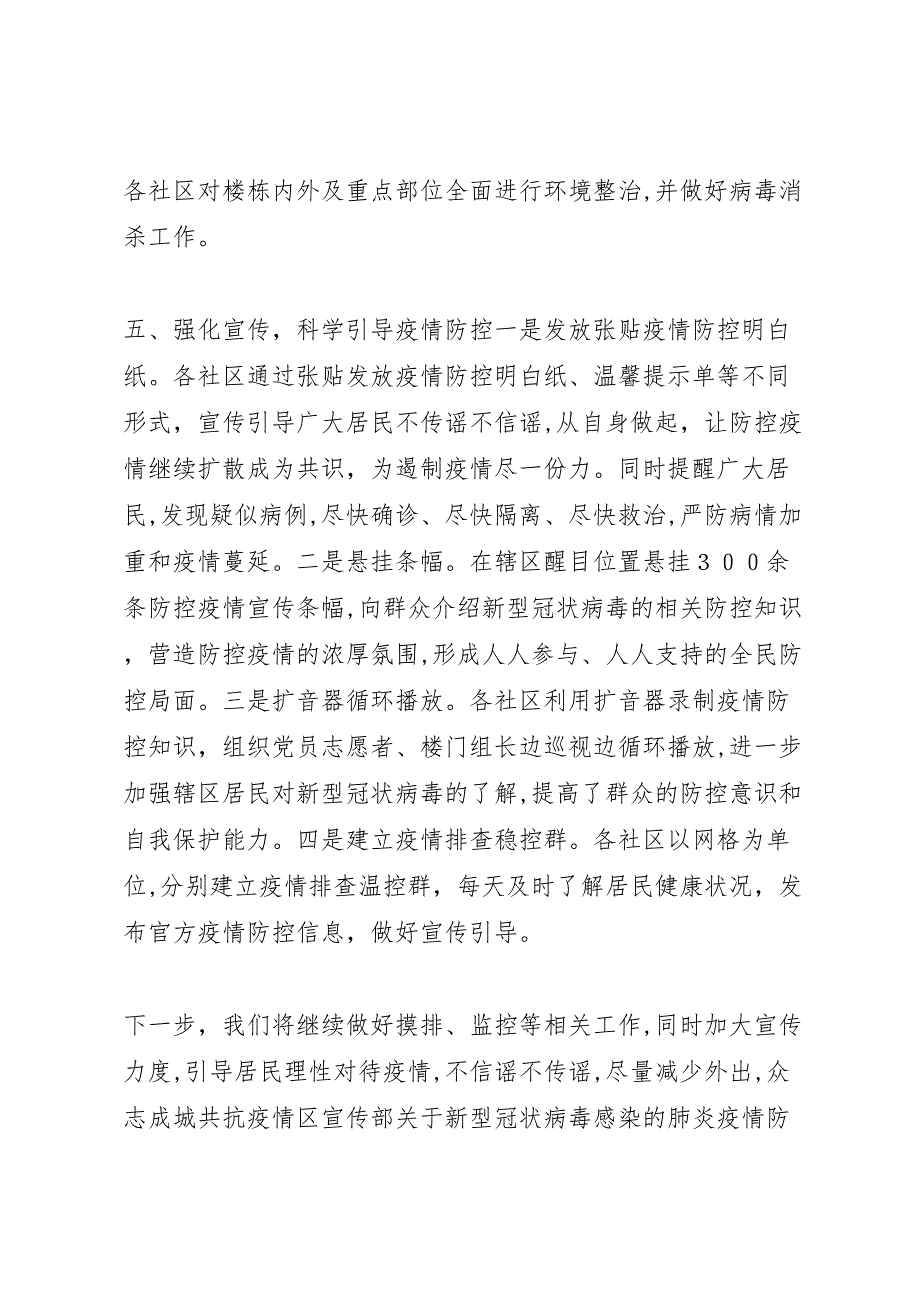 各社区对楼栋内外及重点部位全面进行环境整治,并做好病毒消
杀工作。
五、强化宣传，科学引导疫情防控一是发放张贴疫情防控明白
纸。各社区通过张贴发放疫情防控明白纸、温馨提示单等不同
形式，宣传引导广大居民不传谣不信谣,从自身做起，让防控疫
情继续扩散成为共识，为遏制疫情尽一份力。同时提醒广大居
民,发现疑似病例,尽快确诊、尽快隔离、尽快救治,严防病情加
重和疫情蔓延。二是悬挂条幅。在辖区醒目位置悬挂３００余
条防控疫情宣传条幅,向群众介绍新型冠状病毒的相关防控知识
，营造防控疫情的浓厚氛围,形成人人参与、人人支持的全民防
控局面。三是扩音器循环播放。各社区利用扩音器录制疫情防
控知识，组织党员志愿者、楼门组长边巡视边循环播放,进一步
加强辖区居民对新型冠状病毒的了解,提高了群众的防控意识和
自我保护能力。四是建立疫情排查稳控群。各社区以网格为单
位,分别建立疫情排查温控群，每天及时了解居民健康状况，发
布官方疫情防控信息，做好宣传引导。
下一步，我们将继续做好摸排、监控等相关工作,同时加大宣传
力度,引导居民理性对待疫情,不信谣不传谣,尽量减少外出,众
志成城共抗疫情区宣传部关于新型冠状病毒感染的肺炎疫情防